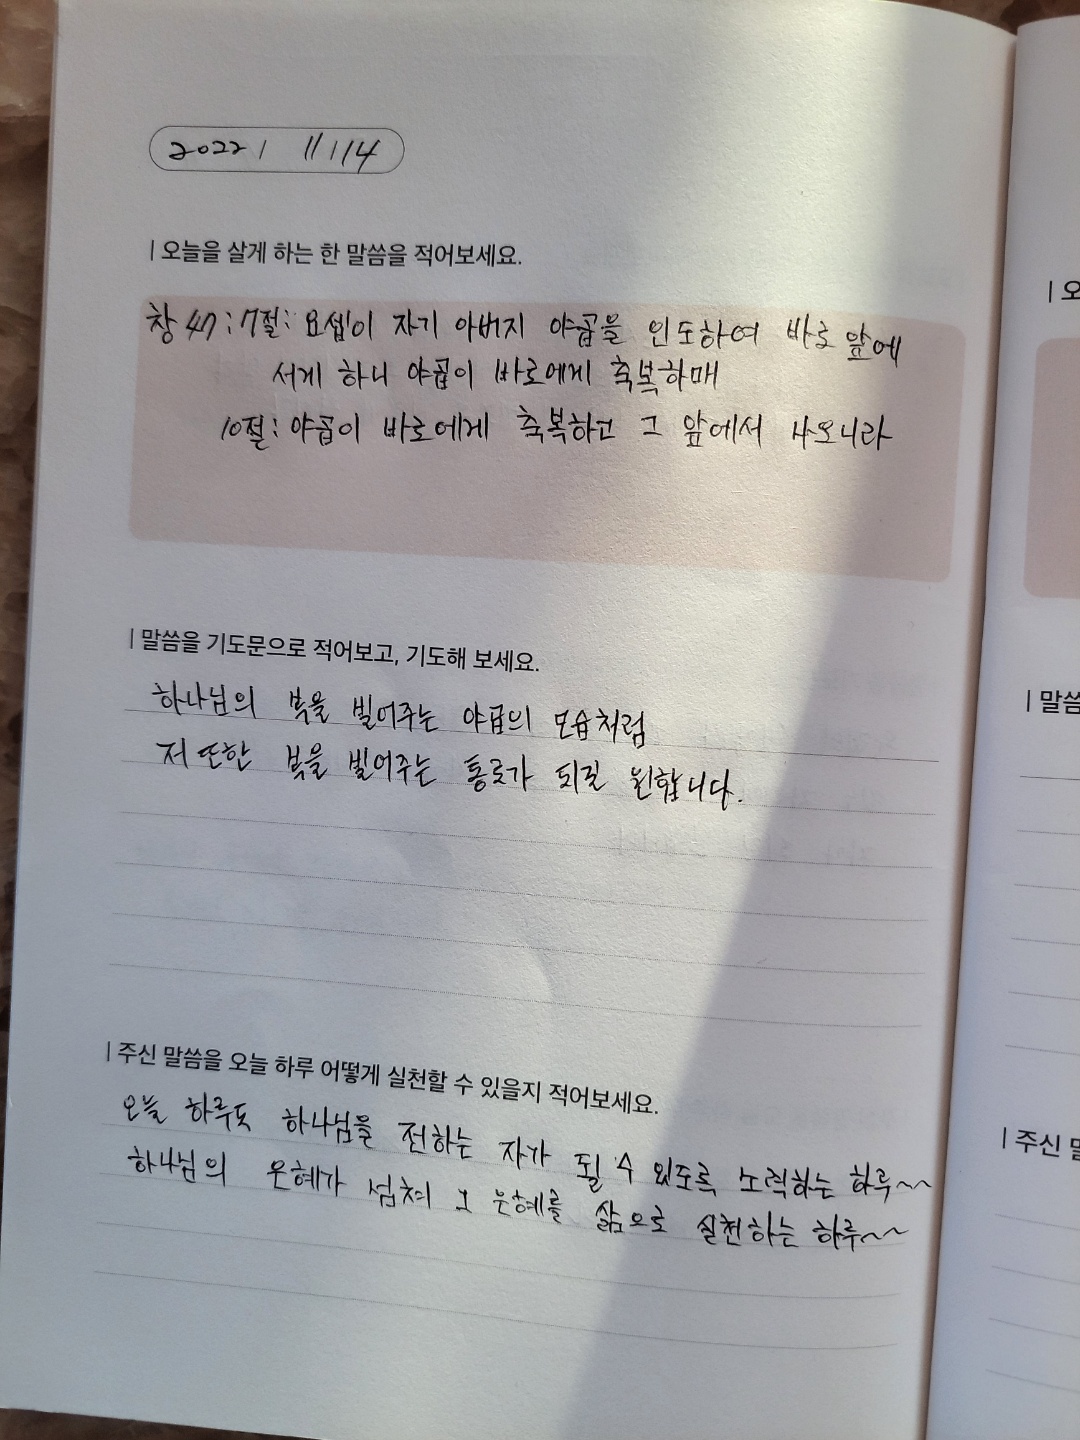 2022 / 11 / 14
| 오늘을 살게 하는 한 말씀을 적어보세요.
창 47 : 7절 : 요셉이 자기 아버지 야곱을 인도하여 바로 앞에
서게 하니 야곱이 바로에게 축복하매
10절 : 야곱이 바로에게 축복하고 그 앞에서 나오니라
| 말씀을 기도문으로 적어보고, 기도해 보세요.
하나님의 복을 빌어주는 야곱의 모습처럼
저 또한 복을 빌어주는 통로가 되길 원합니다.
| 주신 말씀을 오늘 하루 어떻게 실천할 수 있을지 적어보세요.
오늘 하루도 하나님을 전하는 자가 될 수 있도록 노력하는 하루~~
하나님의 은혜가 넘쳐 그 은혜를 삶으로 실천하는 하루~~
| 오
| 말씀
| 주신